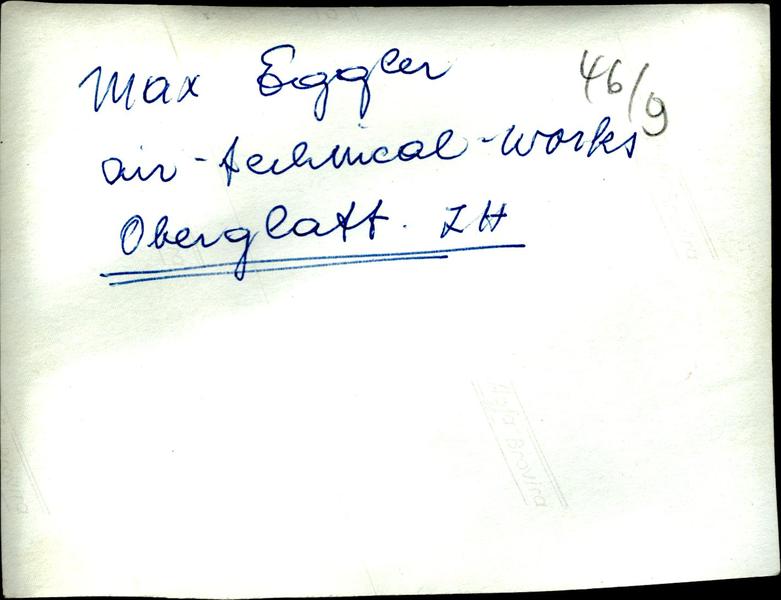 Max Eggler
46/9
air-technical-works
Oberglatt. ZH
Agfa Brovira